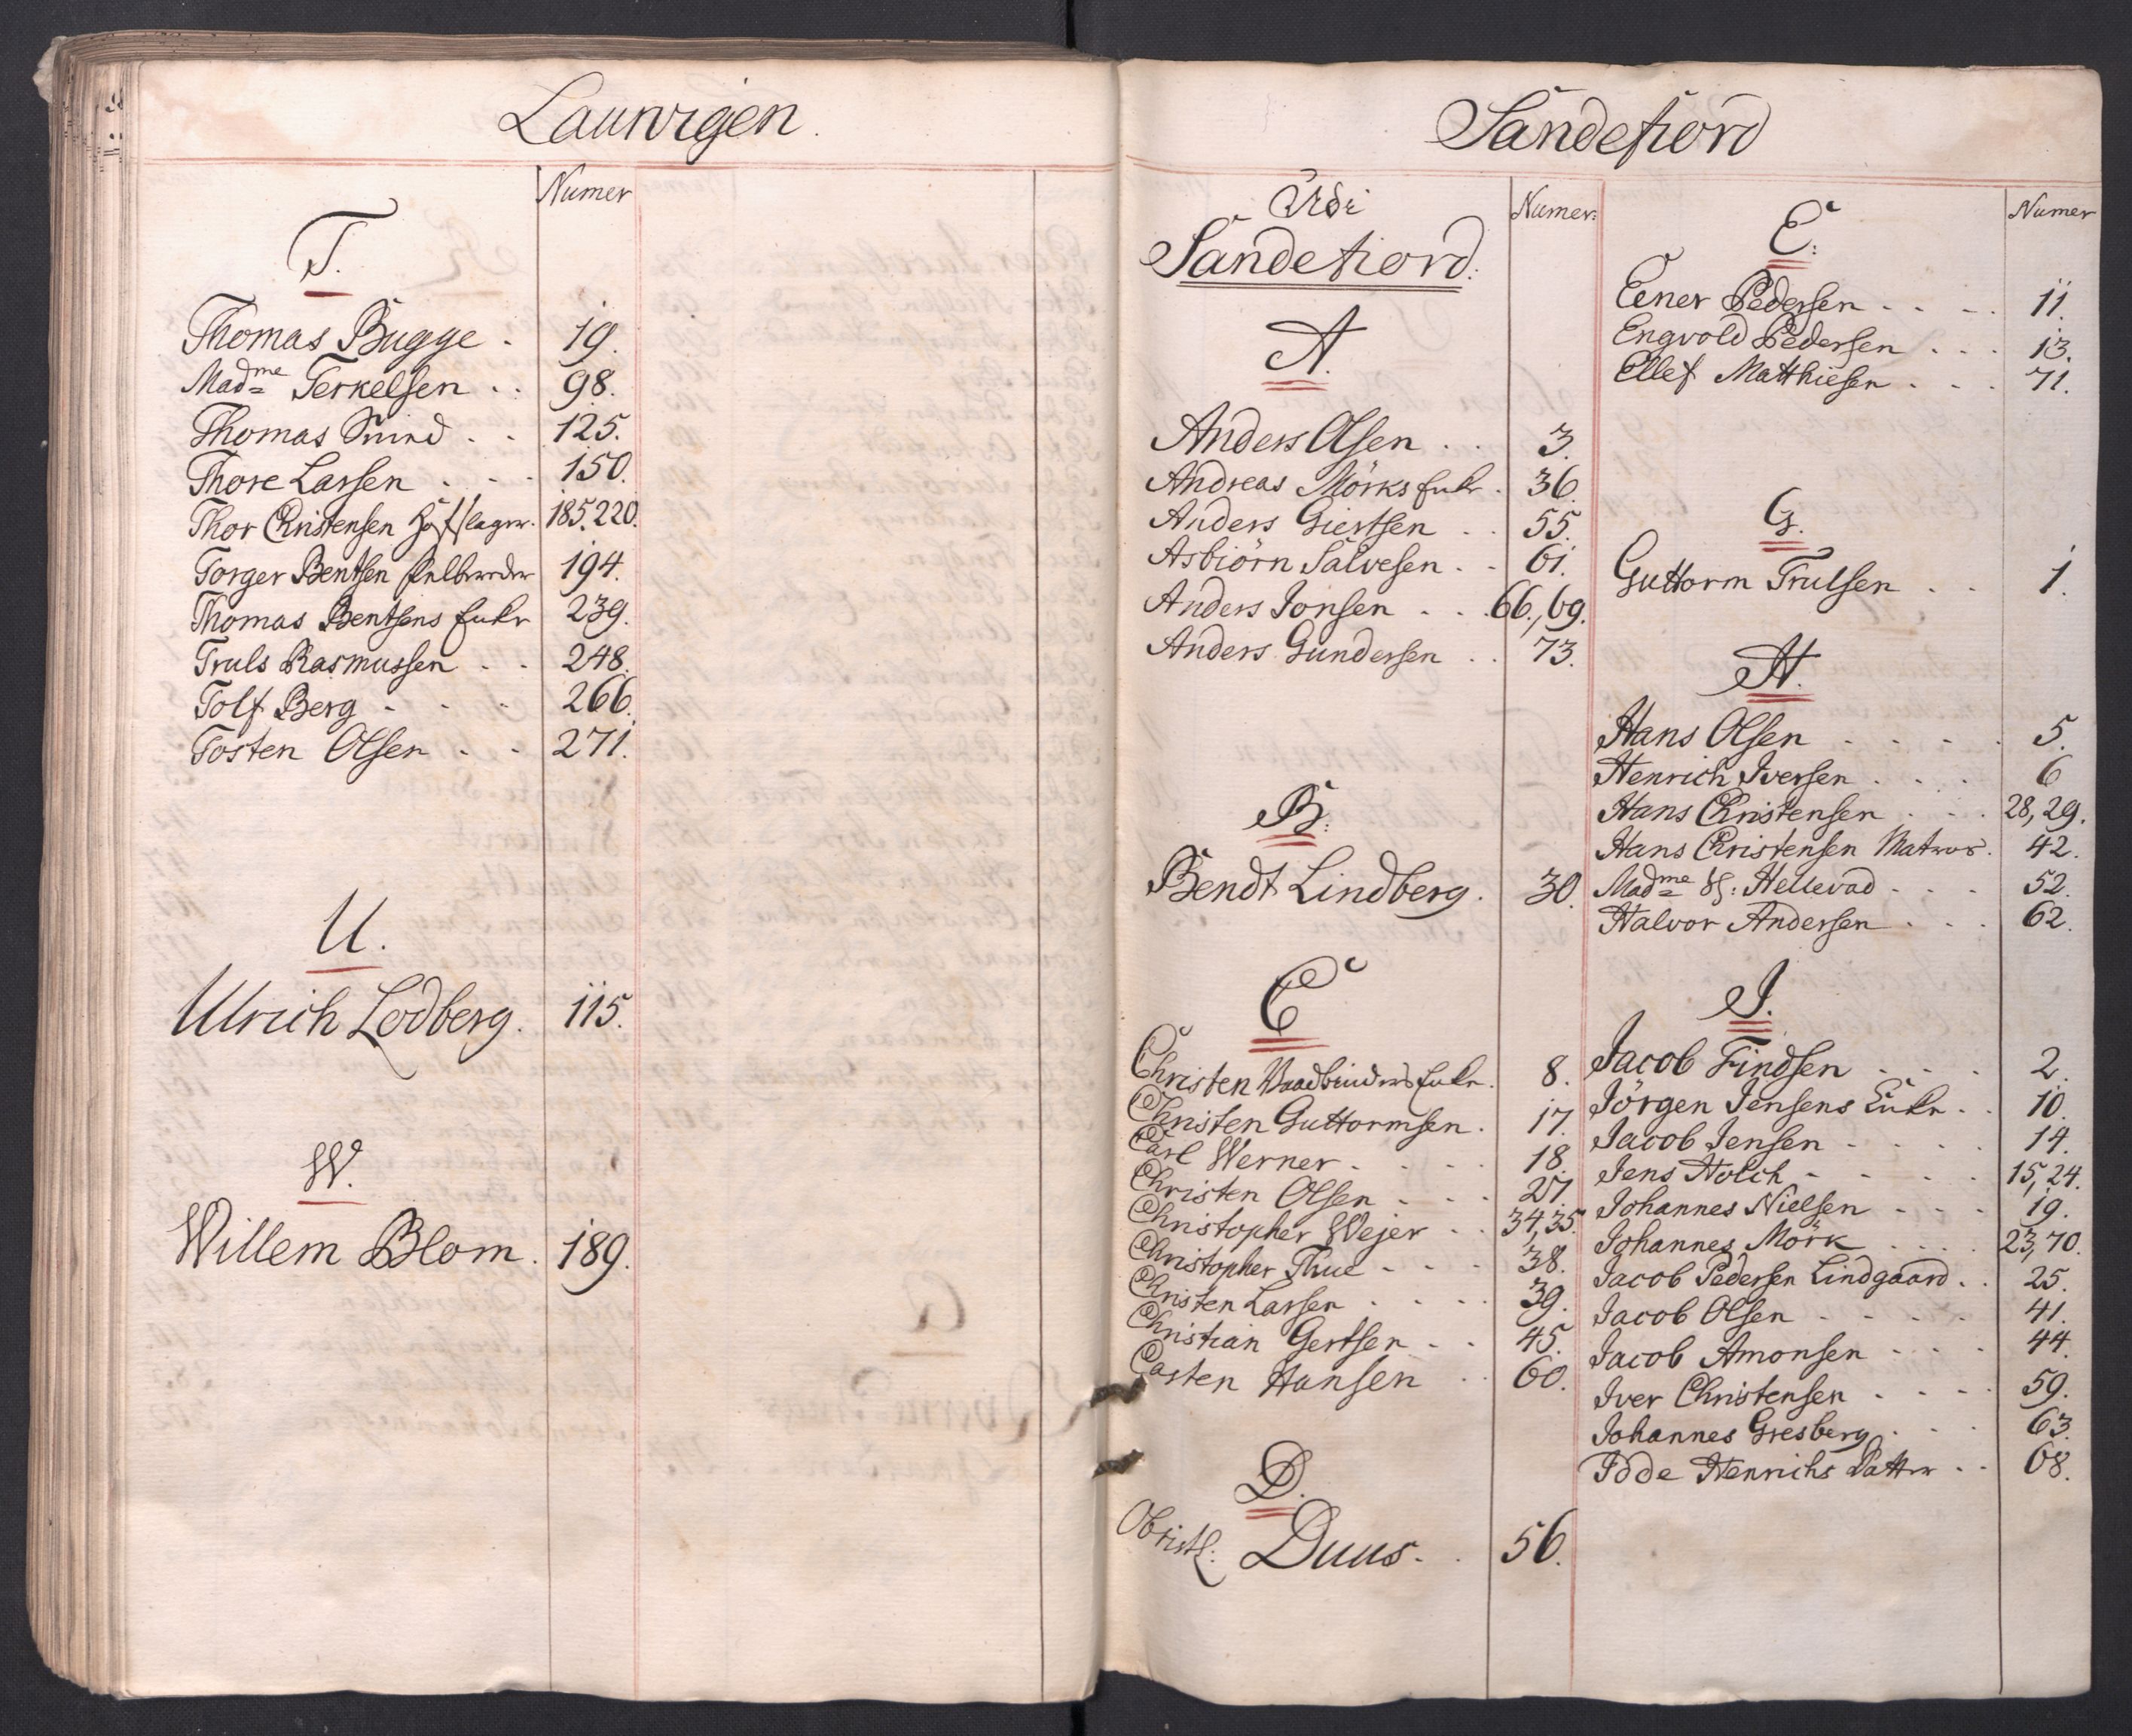 Laurvigen.
Numer
T.
Thomas Bugge . 19.
Madme Terkelsen . . 98.
Thomas Smed . . 125.
Thore Larsen . . . 150.
Thor Christensen 185, 220.
Torger Bentsen 194.
Thomas Bentsens Enke 239.
Truls Rasmussen . . 248.
Tolf Berg . . . 266.
Tosten Olsen . . 271.
U.
Ulrich Lodberg. 115.
W.
Willem Blom. 189.
Sandefiord
Udi Numer:
Sandefiord:
A.
Anders Olsen . . 3.
Andreas Mörks Enke . 36.
Anders Giertsen . . 55.
Asbiörn Salvesen . . 61.
Anders Jonsen . . . 66, 69.
Anders Gundersen . . 73.
B:
Bendt Lindberg . 30.
C
Christen Enke . 8.
Christen Guttormsen . 17.
Carl Werner . . . . 18.
Christen Olsen . . . 27.
Christopher Wejer . . 34, 35.
Christopher Thue . . . 38.
Christen Larsen . . . . 39.
Christian Gertsen . . 45.
Casten Hansen . . 60.
D.
Obristl: Duus . . 56.
Numer
E:
Eener Pedersen . . . . 11.
Engvold Pedersen . . . 13.
Ellef Matthiesen . . . 71.
G.
Guttorm Trulsen . . 1.
H.
Hans Olsen . . . . . 5.
Henrich Iversen . . . 6
Hans Christensen . . . 28, 29.
Hans Christensen Matros . 42.
Madme Hellevad . . . 52.
Halvor Andersen . . . 62.
J.
Jacob Findsen . . . 2.
Jörgen Jensens Enke . . 10.
Jacob Jensen . . . . 14.
Jens Holch . . . . 15, 24.
Johannes Nielsen . . . 19.
Johannes Mörk . . . . 23, 70.
Jacob Pedersen Lindgaard . . 25.
Jacob Olsen . . . . 41.
Jacob Amonsen . . . 44.
Iver Christensen . . . . 59.
Johannes Gresberg . . . 63.
Idde Henrichs Datter . . 68.